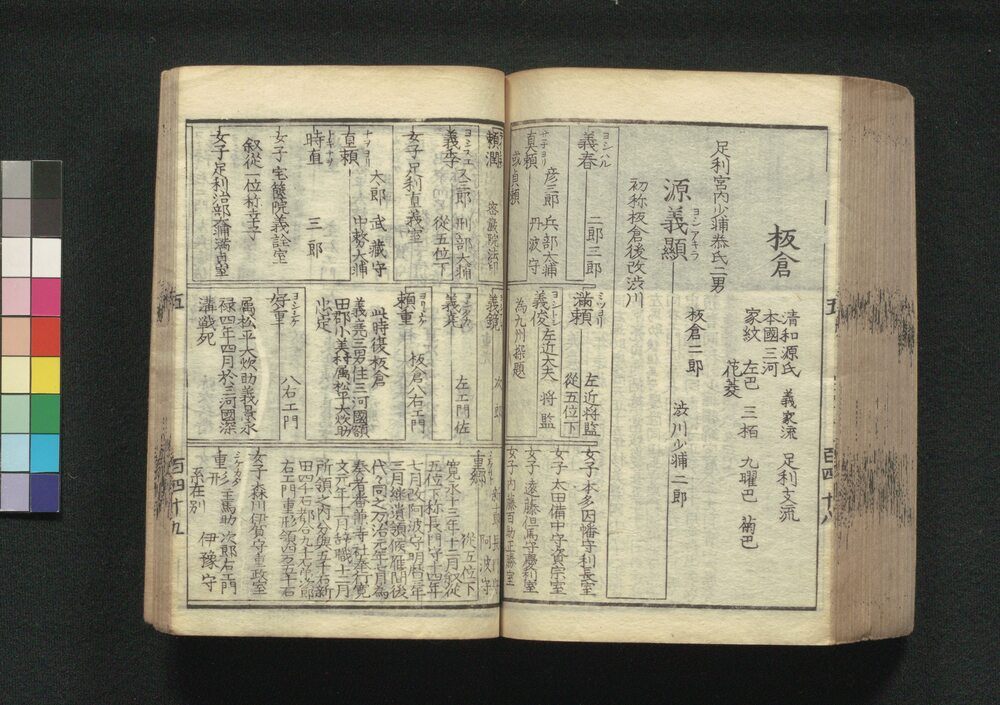 板倉
清和源氏 義家流 足利支流
本國三河
家紋 左巴 三栢 九曜巴 菊巴
花菱
足利宮内少輔泰氏二男
源義顯 ヨシアキラ
板倉二郎 渋川少輔二郎
初称板倉後改渋川
義春 ヨシハル 二郎三郎
貞頼 サダヨリ 彦三郎 兵部大輔
或貞頼 丹波守
満頼 ミツヨリ 左近将監
從五位下
義俊 ヨシトシ 左近大夫 将監
為九州探題
女子 本多因幡守利長室
女子 太田備中守資宗室
女子 遠藤但馬守慶利室
女子 内藤百助正勝室
頼潤
義季 ヨシスエ 又三郎 刑部大輔
從五位下
女子 足利直義室
直頼 ナヲヨリ 太郎 武藏守
中務大輔
時直 トキナヲ 三郎
女子 宝篋院義詮室
叙從一位幸子
女子 足利治部大輔満貞室
義鏡 太郎
義堯 左エ門佐
頼重 ヨリシゲ 板倉八右エ門
此時復板倉
義堯三男住三河國額
田郡小美村属松平大炊助
忠定
好重 ヨシシゲ 八右エ門
属松平大炊助義景永
禄四年四月於三河國深
溝戦死
重郷 阿波守
從五位下
寛永十三年十二月叙從
五位下称長門守十四年
七月改阿波守明暦二年
三月継遺領候雁間後
代々同之万治元年七月為
奏者番兼寺社奉行寛
文元年十一月辞職十二月
所領之内分與五千石新
田四千石都合九千石次郎
右エ門重形領四万五千石
女子 森川伊賀守重政室
重形 シゲカタ 主馬助 次郎右エ門
系在別 伊豫守
五 百四十八
五 百四十九